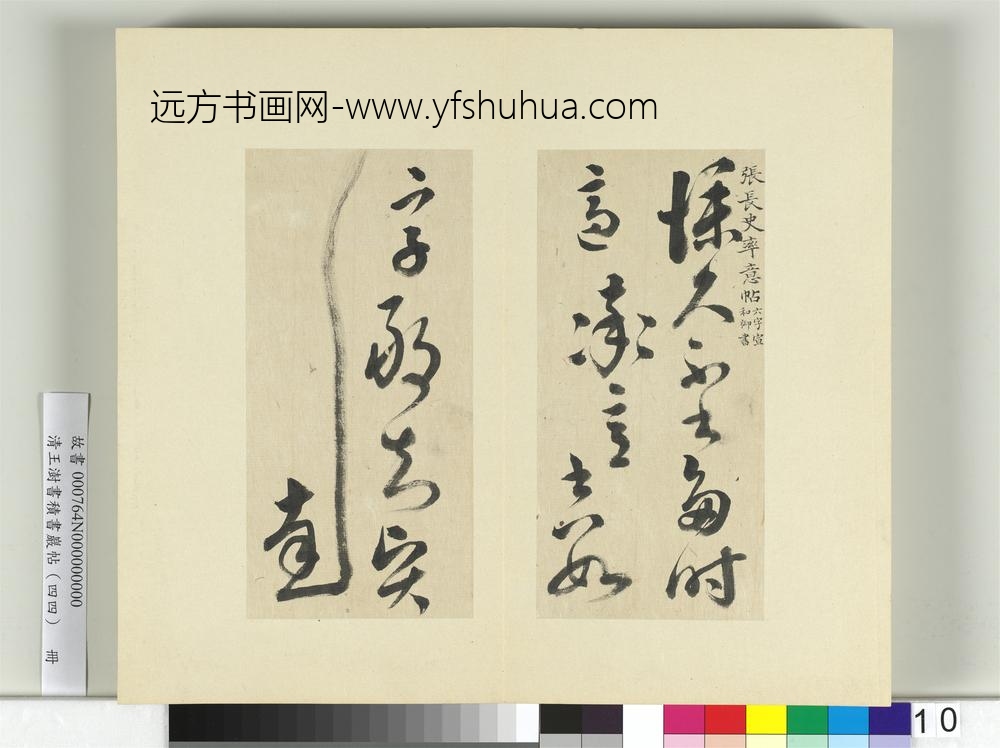 远方书画网-www.yfshuhua.com
張長史率意帖 六字宣和御書
久不
時
適率意書數
字敢知
故書 000764N000000000
清王澍書積書巖帖（四四） 冊
10